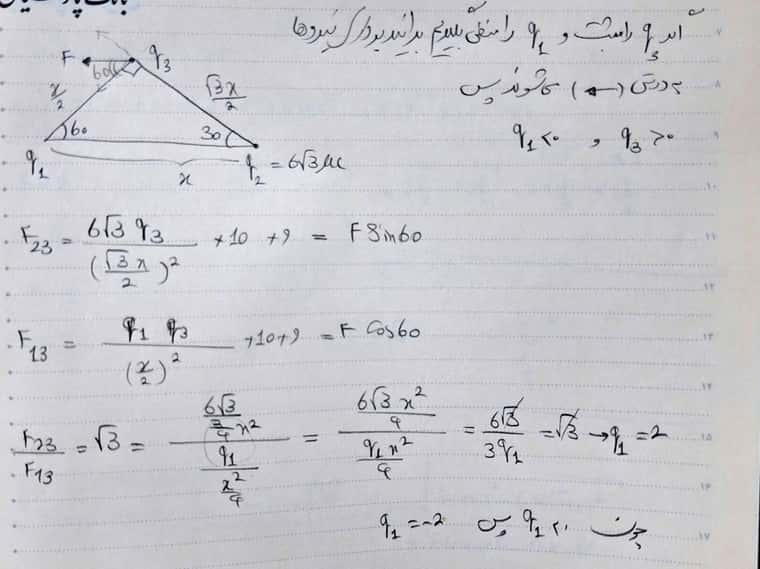 اگر q₃ را مثبت و q₁ را منفی بگیریم برآیند بردار نیروها
به درستی (←) می شوند پس
q₁ < ۰ و q₃ > ۰
F 60 q₃
x/2 √3x/2
60 30
q₁ x q₂ = 6√3 μc
F₂₃ = 6√3 q₃ / (√3x/2)² * 10 + 9 = F Sin60
F₁₃ = q₁ q₃ / (x/2)² * 10 + 9 = F Cos60
F₂₃/F₁₃ = √3 = (6√3 / (3/4 x²)) / (q₁ / (x²/4)) = (6√3 x²/4) / (q₁ x²/4) = 6√3 / 3q₁ = √3 → q₁ = 2
چون q₁ < ۰ پس q₁ = -2